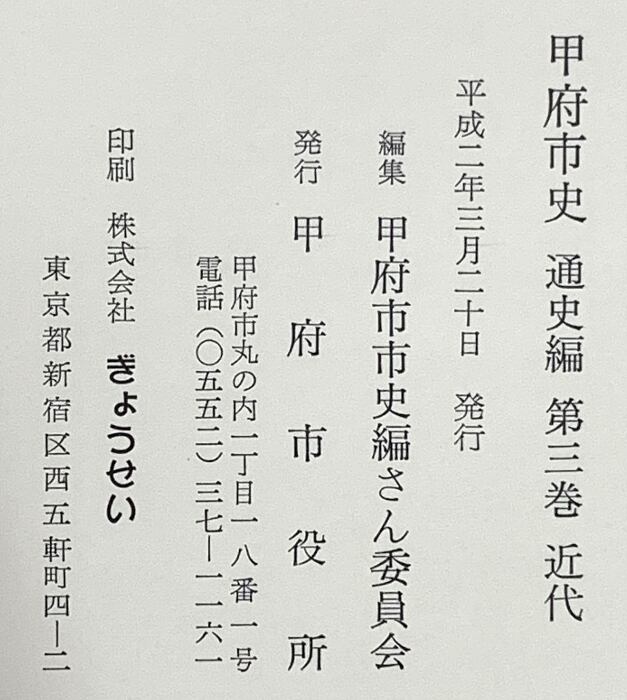 甲府市史 通史編 第三巻 近代
平成二年三月二十日 発行
編集 甲府市市史編さん委員会
発行 甲府市役所
甲府市丸の内一丁目一八番一号
電話（〇五五二）三七―一一六一
印刷 株式会社 ぎょうせい
東京都新宿区西五軒町四―二